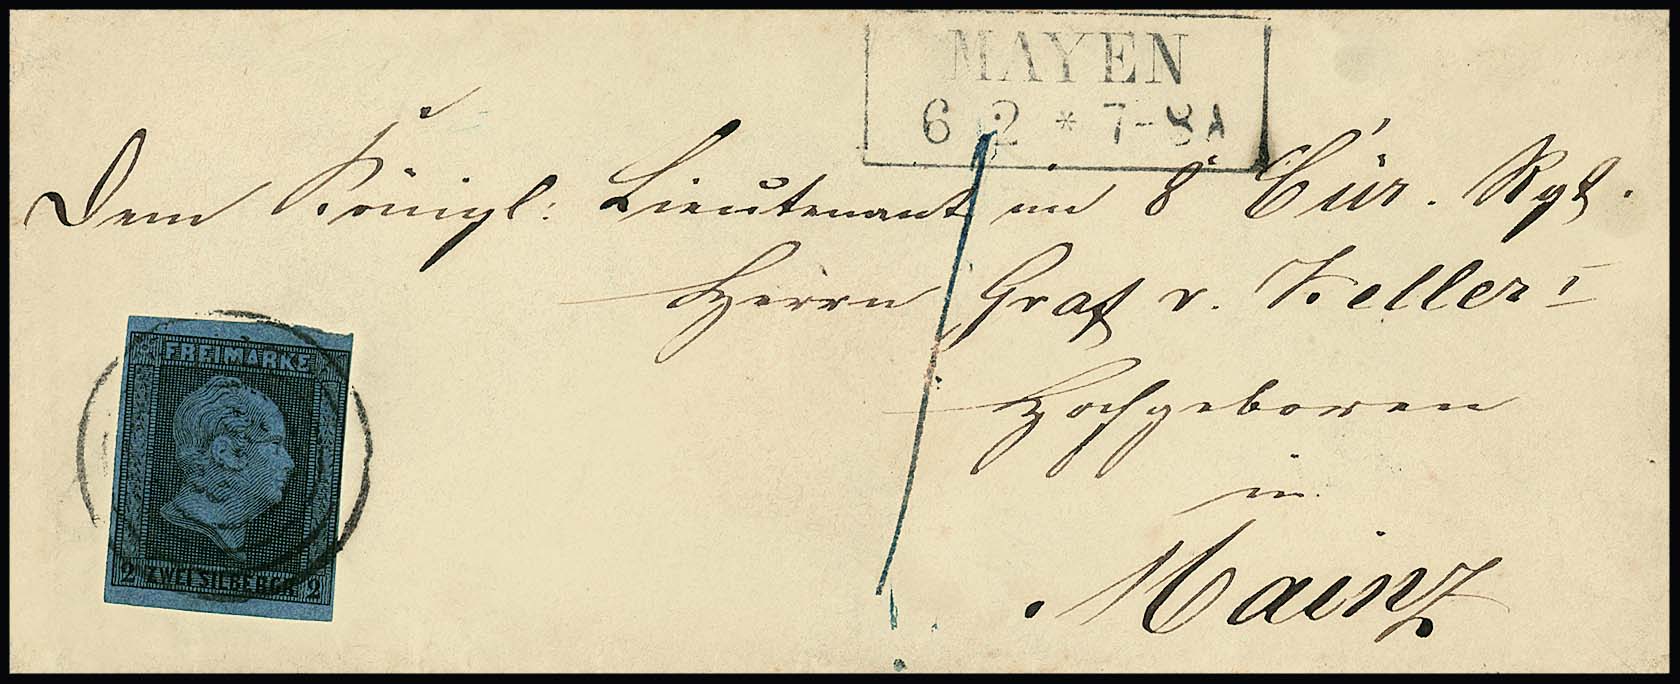 MAYEN
6 2 * 7-8 A
Dem Königl: Lieutenant im 8 Cür. Rgt.
Herrn Graf v. Keller I
Hochgeboren
in
Mainz
FREIMARKE
2 ZWEI SILBERGR. 2